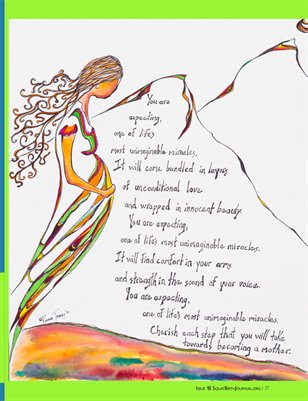 You are
expecting,
one of life's
most unimaginable miracles.
It will come bundled in layers
of unconditional love
and wrapped in innocent beauty.
You are expecting,
one of life's most unimaginable miracles.
It will find comfort in your arms
and strength in the sound of your voice.
You are expecting,
one of life's most unimaginable miracles.
Cherish each step that you will take
towards becoming a mother.
Issue 18 SquatBirthJournal.org | 37